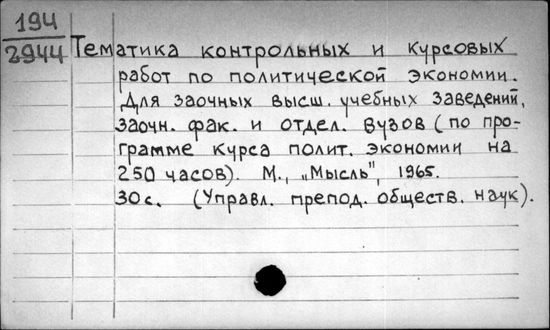 194
2944
Тематика контрольных и курсовых
работ по политической экономии.
Для заочных высш. учебных заведений,
заочн. фак. и отдел. вузов (по про-
грамме курса полит. экономии на
250 часов). М., „Мысль", 1965.
30 с. (Управл. препод. обществ. наук).